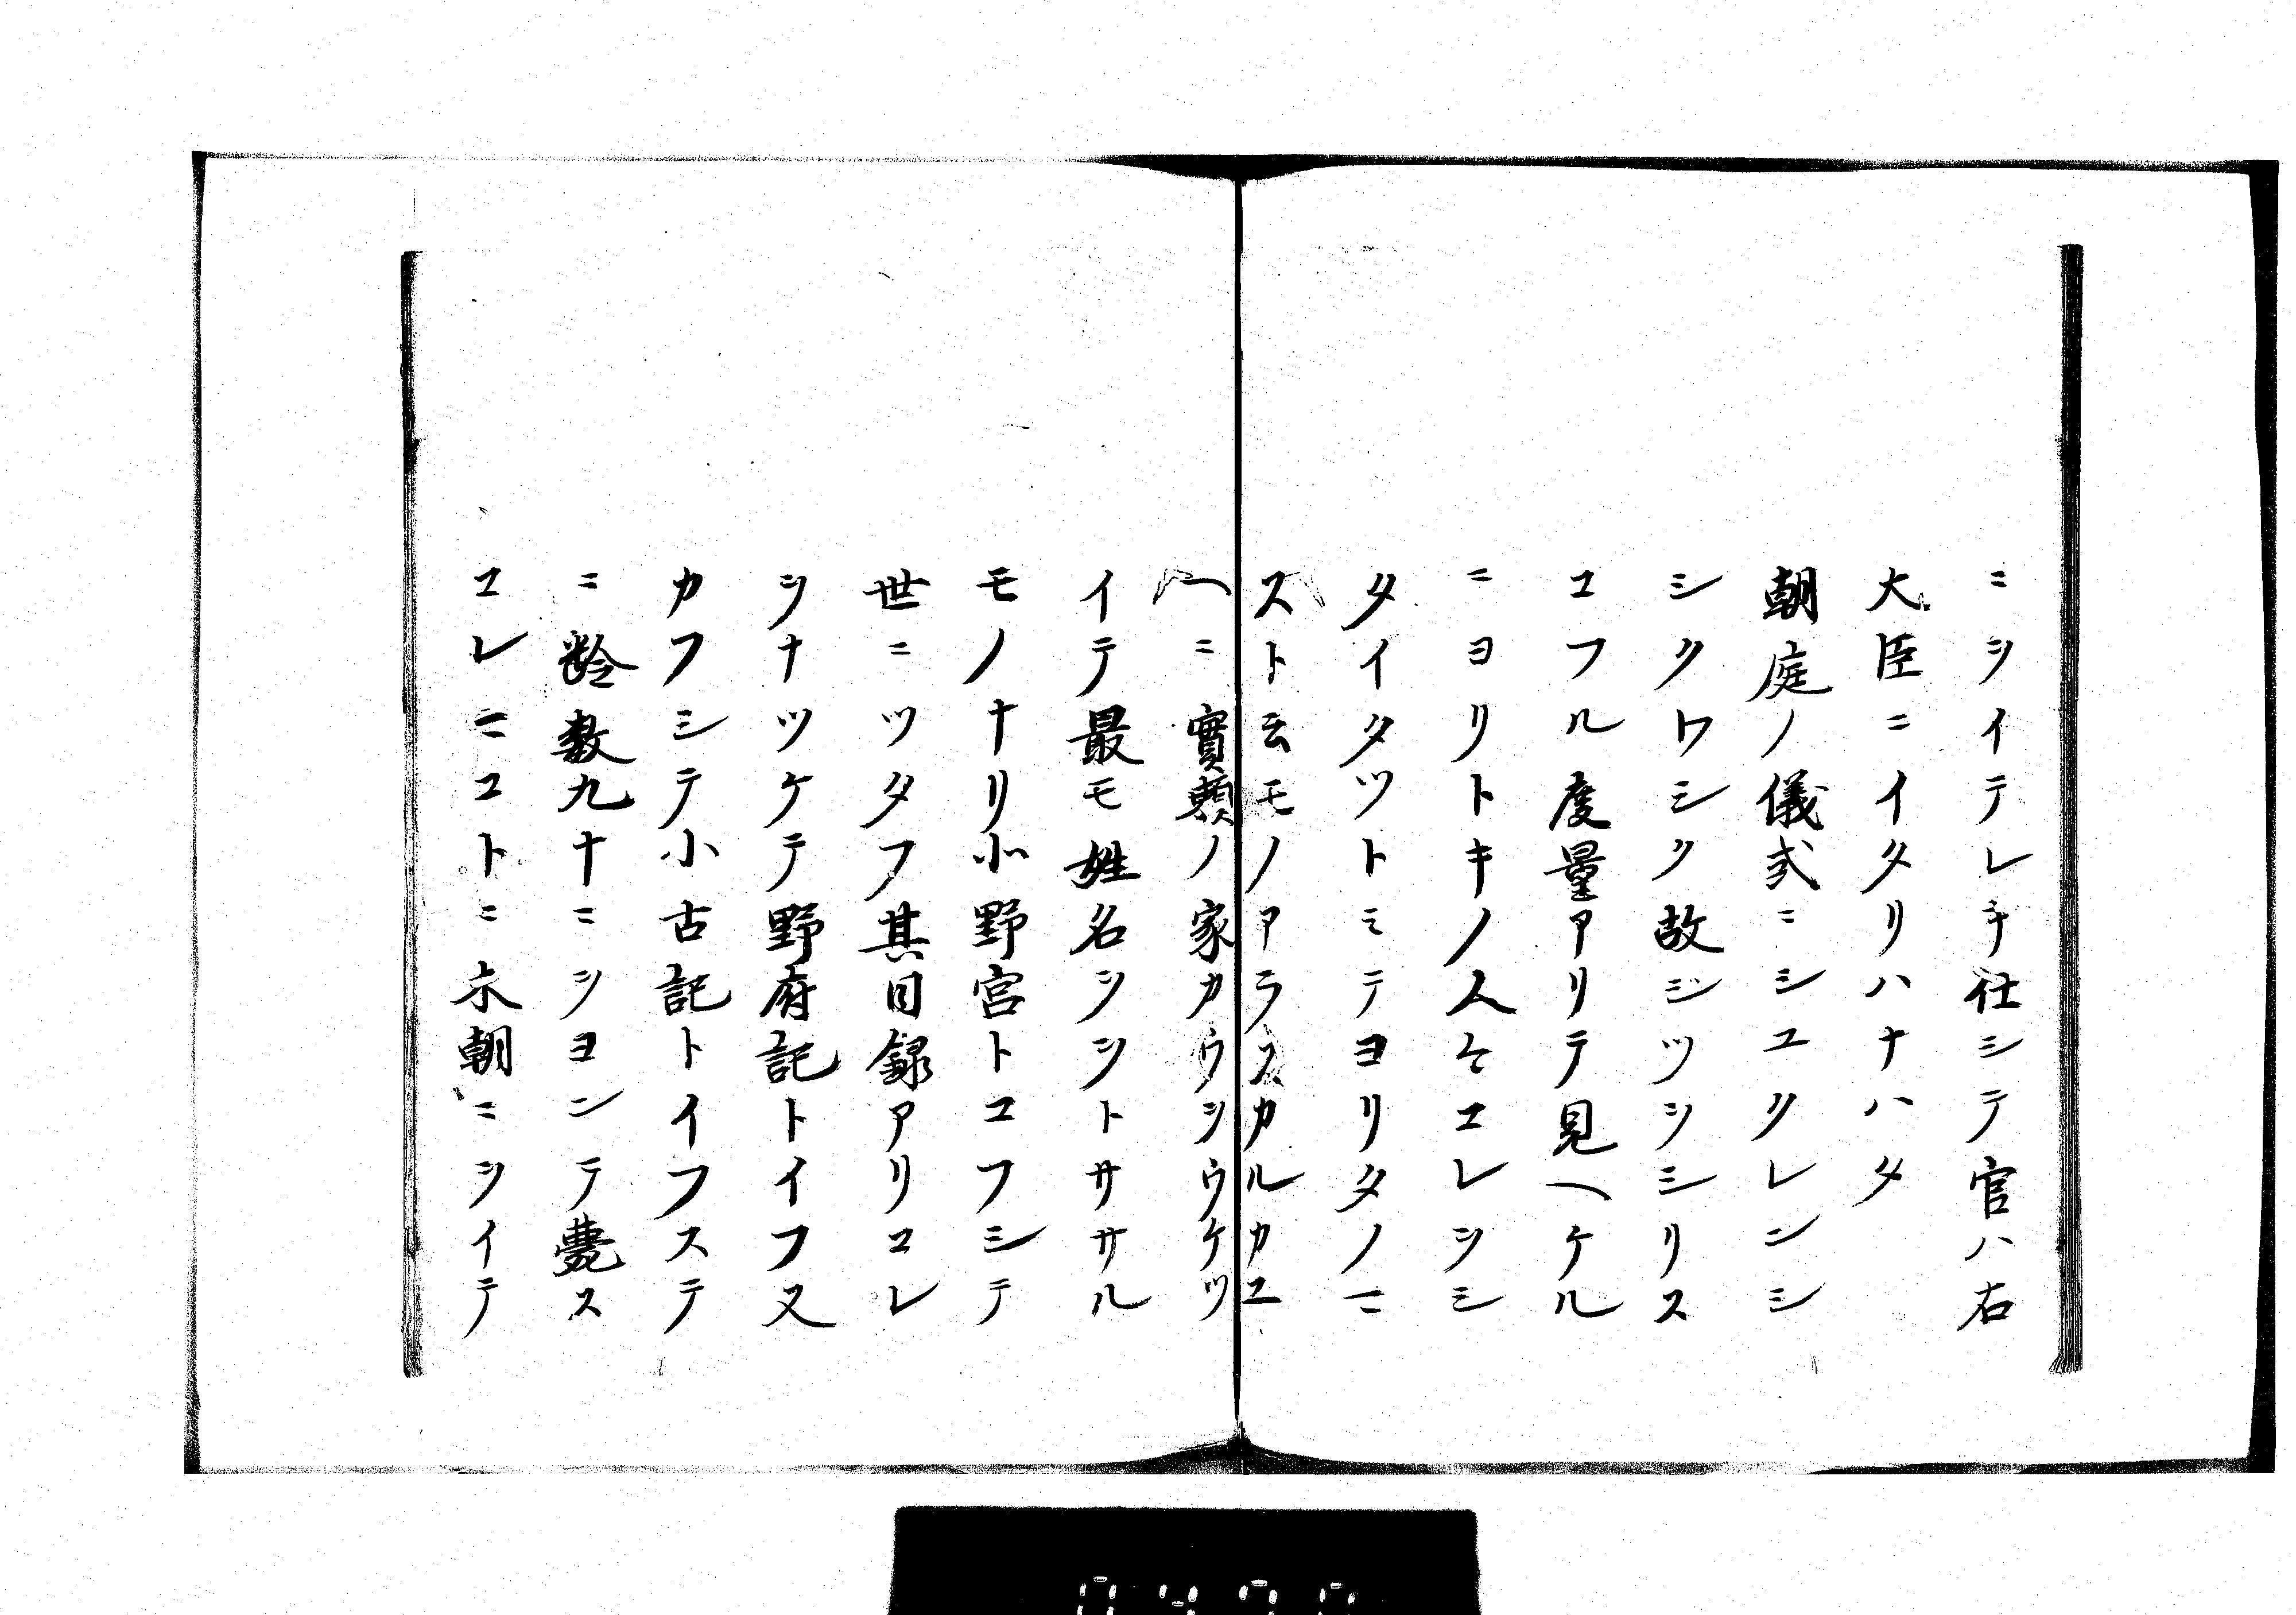 ニシイテレキ仕シテ官ハ右
大臣ニイタリハナハタ
朝庭ノ儀式ニシユクレンシ
シクワシク故ジツシシリス
コフル度量アリテ見ヘケル
ニヨリトキノ人々コレヲシ
タイタツトミテヨリタノニ
スト云モノアラスカルカユ
ヘニ實頼ノ家カウヲウケツ
イテ最モ姓名シントササル
モノナリ小野宮トコフシテ
世ニツタフ其日録アリコレ
ヲナツケテ野府記トイフ又
カフシテ小右記トイフステ
ニ齢数九十ニヲヨンテ薨ス
コレニコトニ本朝ニヲイテ